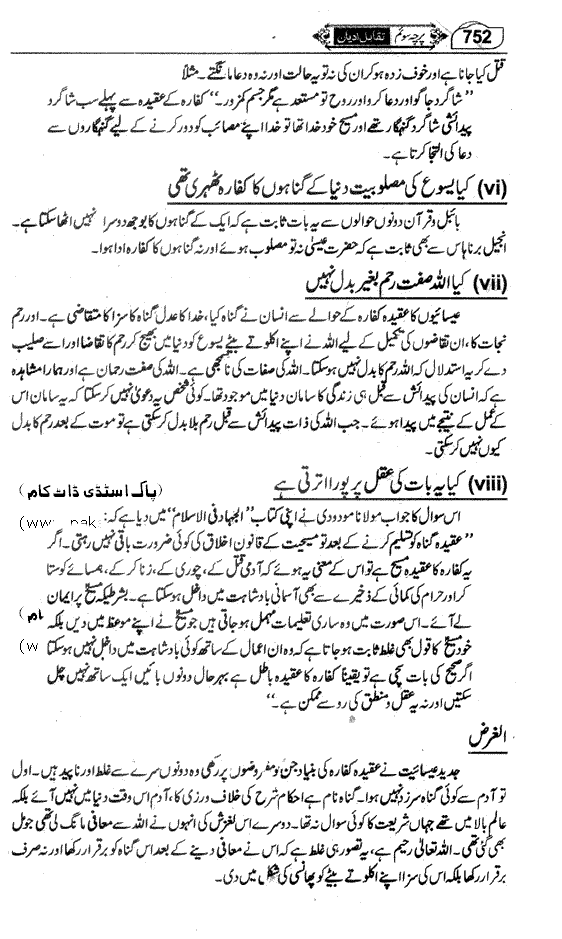 752 پرچہ سوئم تقابل ادیان
قتل کیا جانا ہے اور خوف زدہ ہو کر ان کی نہ تو یہ حالت اور نہ وہ دعا مانگتے۔ مثلاً
”شاگرد جاگو اور دعا کرو اور روح تو مستعد ہے مگر جسم کمزور۔“ کفارہ کے عقیدہ سے پہلے سب شاگرد
پیدائشی شاگرد گنہگار تھے اور مسیح خود خدا تھا تو خدا اپنے مصائب کو دور کرنے کے لیے گنہگاروں سے
دعا کی التجا کرتا ہے۔
(vi) کیا یسوع کی مصلوبیت دنیا کے گناہوں کا کفارہ ٹھہری تھی
بائبل و قرآن دونوں حوالوں سے یہ بات ثابت ہے کہ ایک کے گناہوں کا بوجھ دوسرا نہیں اٹھا سکتا ہے۔
انجیل برناباس سے بھی ثابت ہے کہ حضرت عیسیٰ نہ تو مصلوب ہوئے اور نہ گناہوں کا کفارہ ادا ہوا۔
(vii) کیا اللہ صفت رحم بغیر بدل نہیں
عیسائیوں کا عقیدہ کفارہ کے حوالے سے انسان نے گناہ کیا، خدا کا عدل گناہ کا سزا کا متقاضی ہے۔ اور رحم
نجات کا، ان تقاضوں کی تکمیل کے لیے اللہ نے اپنے اکلوتے بیٹے یسوع کو دنیا میں بھیج کر رحم کا تقاضا اور اسے صلیب
دے کر یہ استدلال کہ اللہ رحم کا بدل نہیں ہوسکتا۔ اللہ کی صفات کی نا سمجھی ہے۔ اللہ کی صفت رحمان ہے اور ہمارا مشاہدہ
ہے کہ انسان کی پیدائش سے قبل ہی زندگی کا سامان دنیا میں موجود تھا۔ کوئی شخص یہ دعویٰ نہیں کر سکتا کہ یہ سامان اس
کے عمل کے نتیجے میں پیدا ہوئے۔ جب اللہ کی ذات پیدائش سے قبل رحم بلا بدل کر سکتی ہے تو موت کے بعد رحم کا بدل
کیوں نہیں کر سکتی۔
(viii) کیا یہ بات کی عقل پر پورا اترتی ہے (پاک اسٹڈی ڈاٹ کام)
اس سوال کا جواب مولانا مودودی نے اپنی کتاب ”الجہاد فی الاسلام“ میں دیا ہے کہ: (www.paks
”عقیدہ گناہ کو تسلیم کرنے کے بعد تو مسیحیت کے قانون اخلاق کی کوئی ضرورت باقی نہیں رہتی۔ اگر
یہ کفارہ کا عقیدہ مسیح ہے تو اس کے معنی یہ ہوئے کہ آدمی قتل کے، چوری کے، زنا کرکے، ہمسائے کو ستا
کر اور حرام کی کمائی کے ذخیرے سے بھی آسمانی بادشاہت میں داخل ہو سکتا ہے۔ بشرطیکہ مسیح پر ایمان
لے آئے۔ اس صورت میں وہ ساری تعلیمات مہمل ہو جاتی ہیں جو مسیح نے اپنے مواعظ میں دیں بلکہ
خود مسیح کا قول بھی غلط ثابت ہو جاتا ہے کہ وہ ان اعمال کے ساتھ کوئی بادشاہت میں داخل نہیں ہوسکتا (w
اگر صحیح کی بات سچی ہے تو یقیناً کفارہ کا عقیدہ باطل ہے بہرحال دونوں باتیں ایک ساتھ نہیں چل
سکتیں اور نہ یہ عقل و منطق کی رو سے ممکن ہے۔“
الغرض
جدید عیسائیت نے عقیدہ کفارہ کی بنیاد جن دو مفروضوں پر رکھی وہ دونوں سرے سے غلط اور ناپید ہیں۔ اول
تو آدم سے کوئی گناہ سرزد نہیں ہوا۔ گناہ نام ہے احکام شرح کی خلاف ورزی کا، آدم اس وقت دنیا میں نہیں آئے بلکہ
عالم بالا میں تھے جہاں شریعت کا کوئی سوال نہ تھا۔ دوسرے اس لغزش کی انہوں نے اللہ سے معافی مانگ لی تھی جو مل
بھی گئی تھی۔ اللہ تعالیٰ رحیم ہے، یہ تصور ہی غلط ہے کہ اس نے معافی دینے کے بعد اس گناہ کو برقرار رکھا اور نہ صرف
برقرار رکھا بلکہ اس کی سزا اپنے اکلوتے بیٹے کو پھانسی کی شکل میں دی۔